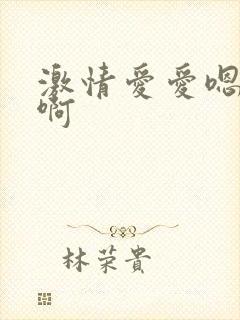 激情愛愛嗯
啊
林荣貴